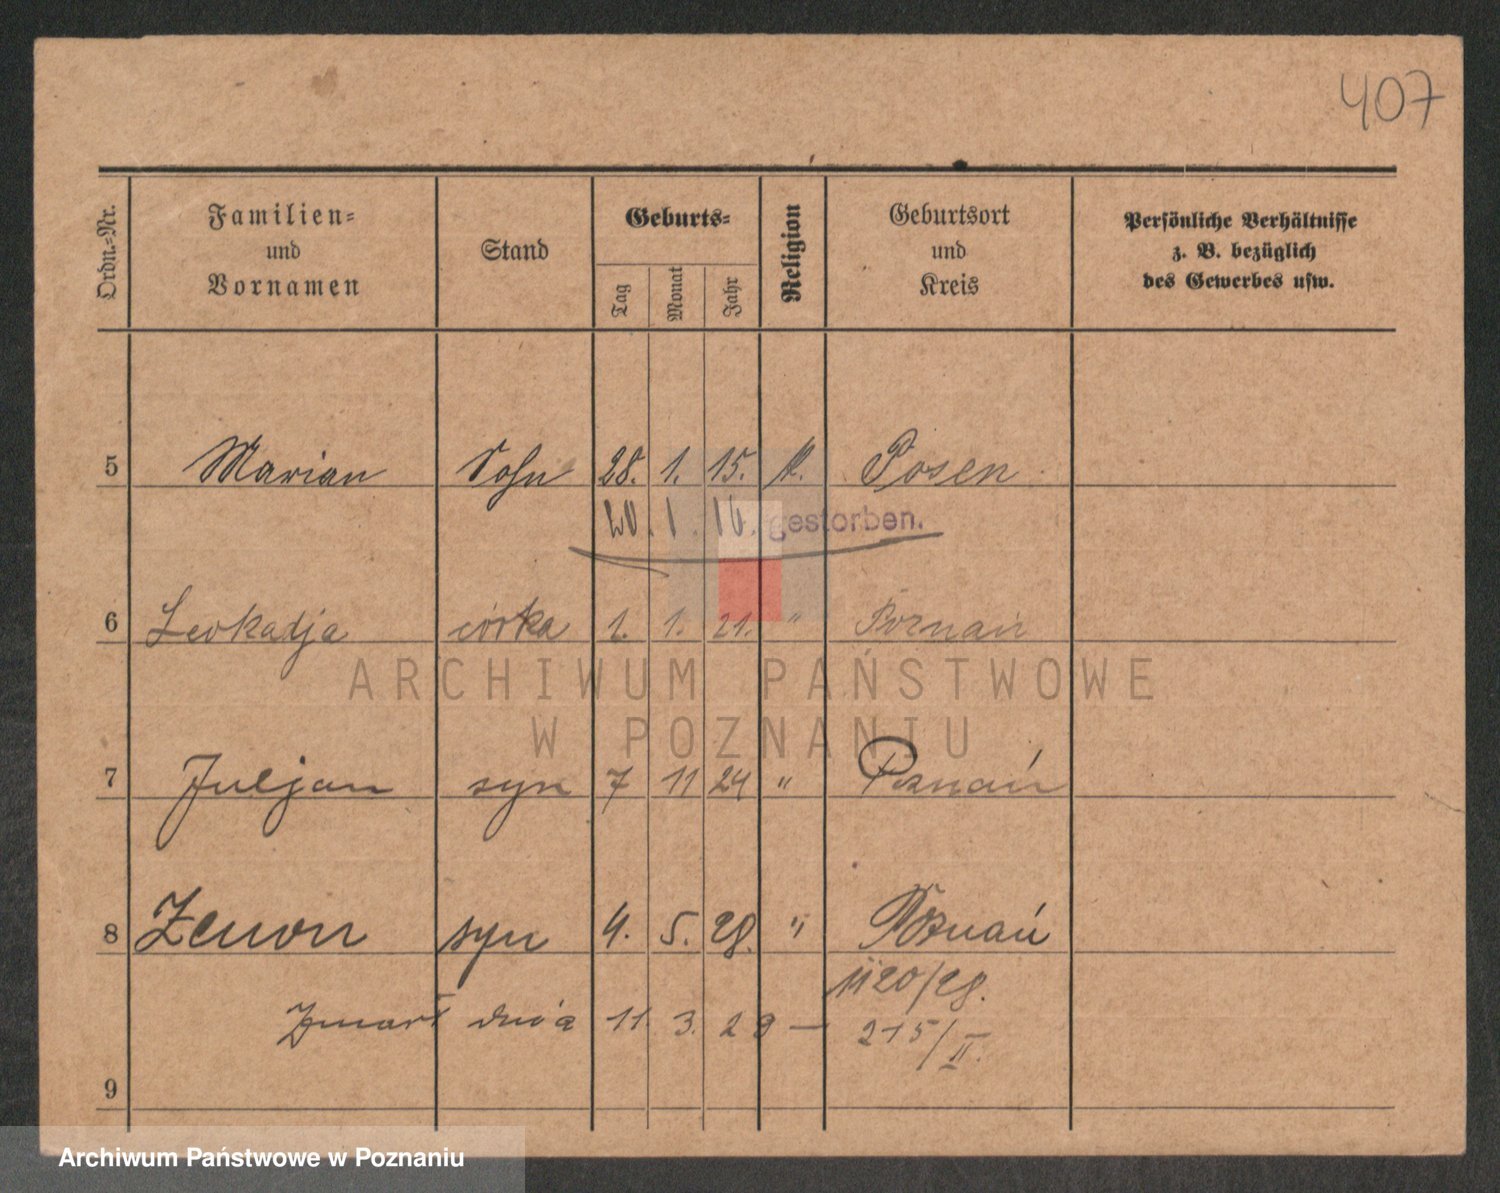 407
Ordn.-Nr.
Familien-
und
Vornamen
Stand
Geburts-
Tag
Monat
Jahr
Religion
Geburtsort
und
Kreis
Persönliche Verhältnisse
z. B. bezüglich
des Gewerbes usw.
5 Marian Sohn 28. 1. 15. k. Posen
20. 1. 16. gestorben.
6 Leokadja córka 1. 1. 21. " Poznań
ARCHIWUM PAŃSTWOWE
W POZNANIU
7 Juljan syn 7 11 24 " Poznań
8 Zenon syn 4. 5. 28. " Poznań
1120/28.
Zmarł dnia 11. 3. 29 — 215/II.
9
Archiwum Państwowe w Poznaniu